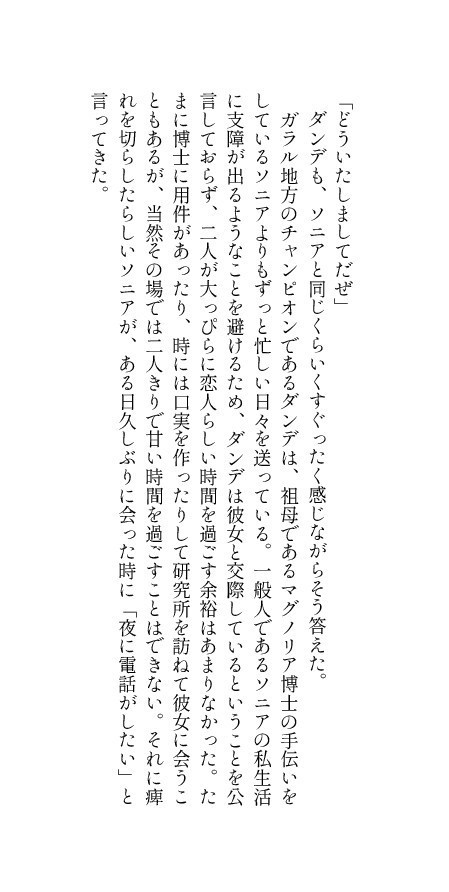 「どういたしましてだぜ」
　ダンデも、ソニアと同じくらいくすぐったく感じながらそう答えた。
　ガラル地方のチャンピオンであるダンデは、祖母であるマグノリア博士の手伝いを
しているソニアよりもずっと忙しい日々を送っている。一般人であるソニアの私生活
に支障が出るようなことを避けるため、ダンデは彼女と交際しているということを公
言しておらず、二人が大っぴらに恋人らしい時間を過ごす余裕はあまりなかった。た
まに博士に用件があったり、時には口実を作ったりして研究所を訪ねて彼女に会うこ
ともあるが、当然その場では二人きりで甘い時間を過ごすことはできない。それに痺
れを切らしたらしいソニアが、ある日久しぶりに会った時に「夜に電話がしたい」と
言ってきた。